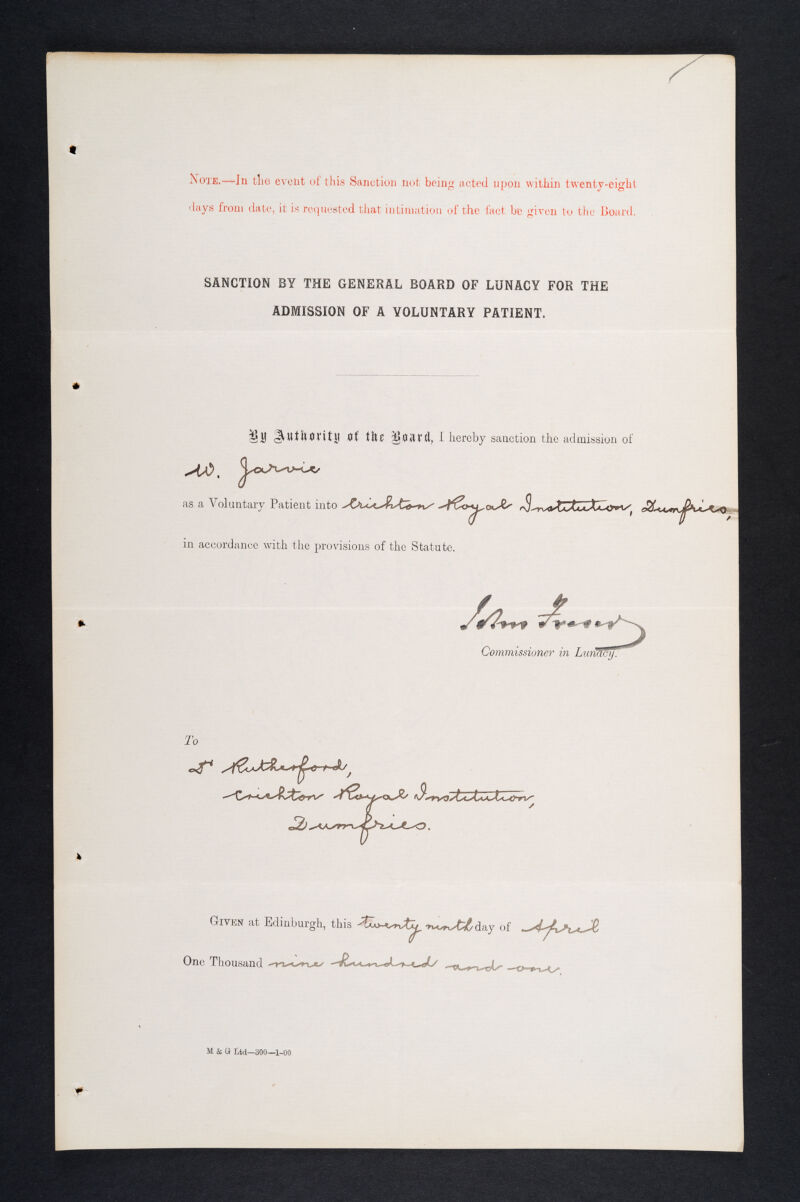 NOTE.—In the event of this Sanction not being acted upon within twenty-eight
days from date, it is requested that intimation of the fact be given to the Board.
SANCTION BY THE GENERAL BOARD OF LUNACY FOR THE
ADMISSION OF A VOLUNTARY PATIENT.
By Authority of the Board, I hereby sanction the admission of
W. Jarvie
as a Voluntary Patient into Crichton Royal Institution, Dumfries,
in accordance with the provisions of the Statute.
John Fraser
Commissioner in Lunacy.
To
Dr Rutherford,
Crichton Royal Institution,
Dumfries.
GIVEN at Edinburgh, this twenty ninth day of April
One Thousand nine hundred and one.
M & G Ltd—300—1-00